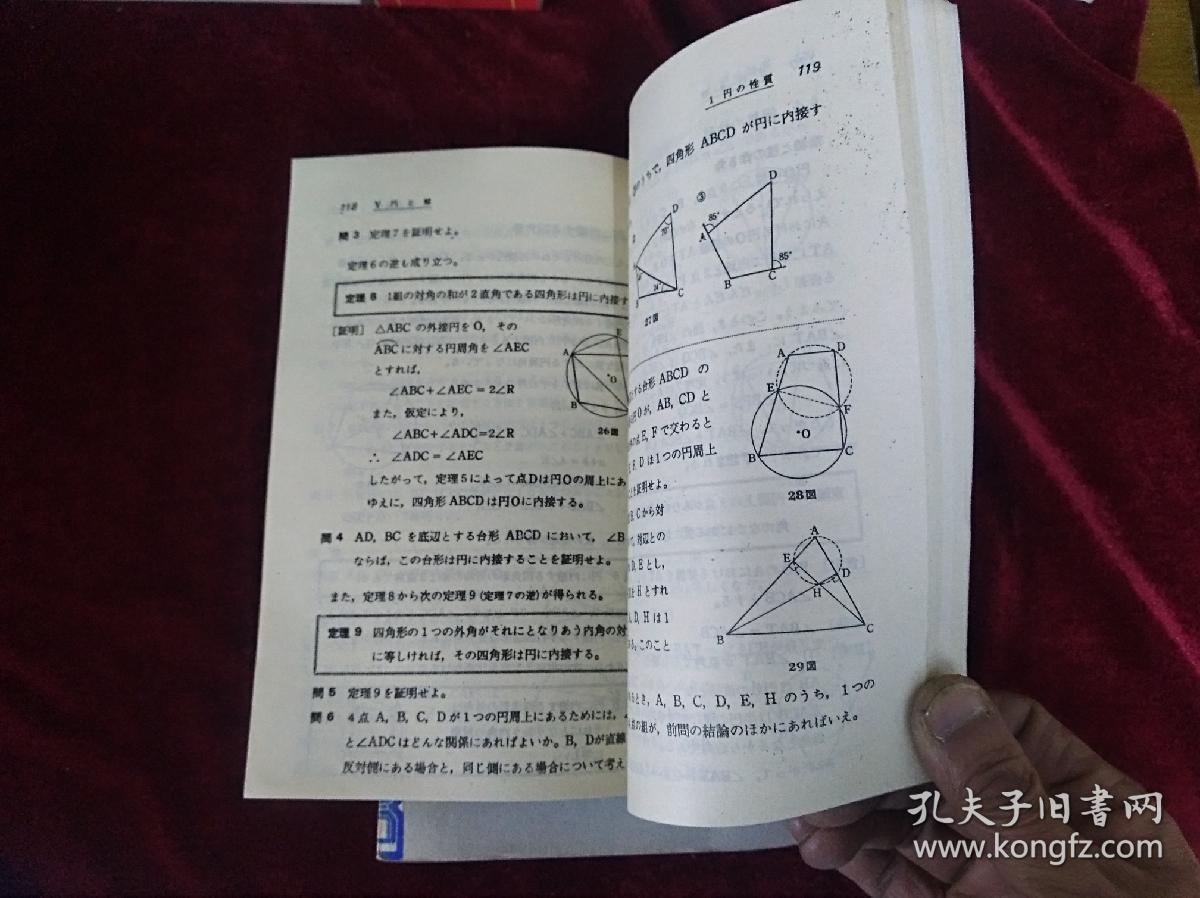 118 V 円と球
問3 定理7を証明せよ。
定理6の逆も成り立つ。
定理8 1組の対角の和が2直角である四角形は円に内接す
[証明] △ABC の外接円をO, その
ABCに対する円周角を ∠AEC
とすれば,
∠ABC+∠AEC=2∠R
また, 仮定により,
∠ABC+∠ADC=2∠R
∴ ∠ADC=∠AEC
したがって, 定理5によって点Dは円Oの周上にあ
ゆえに, 四角形 ABCDは円Oに内接する。
E
A
O
B
26図
問4 AD, BC を底辺とする台形 ABCD において, ∠B
ならば, この台形は円に内接することを証明せよ。
また, 定理8から次の定理9(定理7の逆)が得られる。
定理9 四角形の1つの外角がそれにとなりあう内角の対
に等しければ, その四角形は円に内接する。
問5 定理9を証明せよ。
問6 4点 A, B, C, Dが1つの円周上にあるためには,
と∠ADCはどんな関係にあればよいか。B, Dが直線
反対側にある場合と, 同じ側にある場合について考え
1 円の性質 119
うちで, 四角形 ABCD が円に内接す
D
70°
C
③
D
85°
A
B
C
85°
27図
する台形 ABCD の
円Oが, AB, CD と
E, Fで交わると
F, Dは1つの円周上
を証明せよ。
A
D
E
F
O
B
C
28図
B, Cから対
対辺との
D, Eとし,
Hとすれ
D, Hは1
る。このこと
A
E
D
H
B
C
29図
るとき, A, B, C, D, E, H のうち, 1つの
の組が, 前問の結論のほかにあればいえ。
孔夫子旧书网
www.kongfz.com